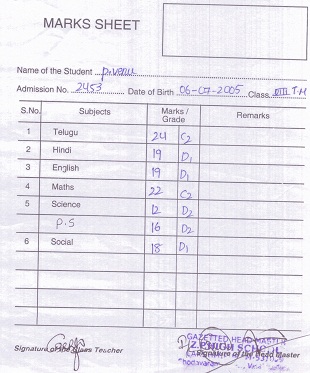 MARKS SHEET
Name of the Student P. Venu
Admission No. 2453 Date of Birth 06-07-2005 Class VIII T.M
S.No. Subjects Marks / Grade Remarks
1 Telugu 24 C2
2 Hindi 19 D1
3 English 19 D1
4 Maths 22 C2
5 Science 12 D2
P.S 16 D2
6 Social 18 D1
GAZETTED HEAD MASTER
Z.P.HIGH SCHOOL
Signature of the Class Teacher Signature of the Head Master